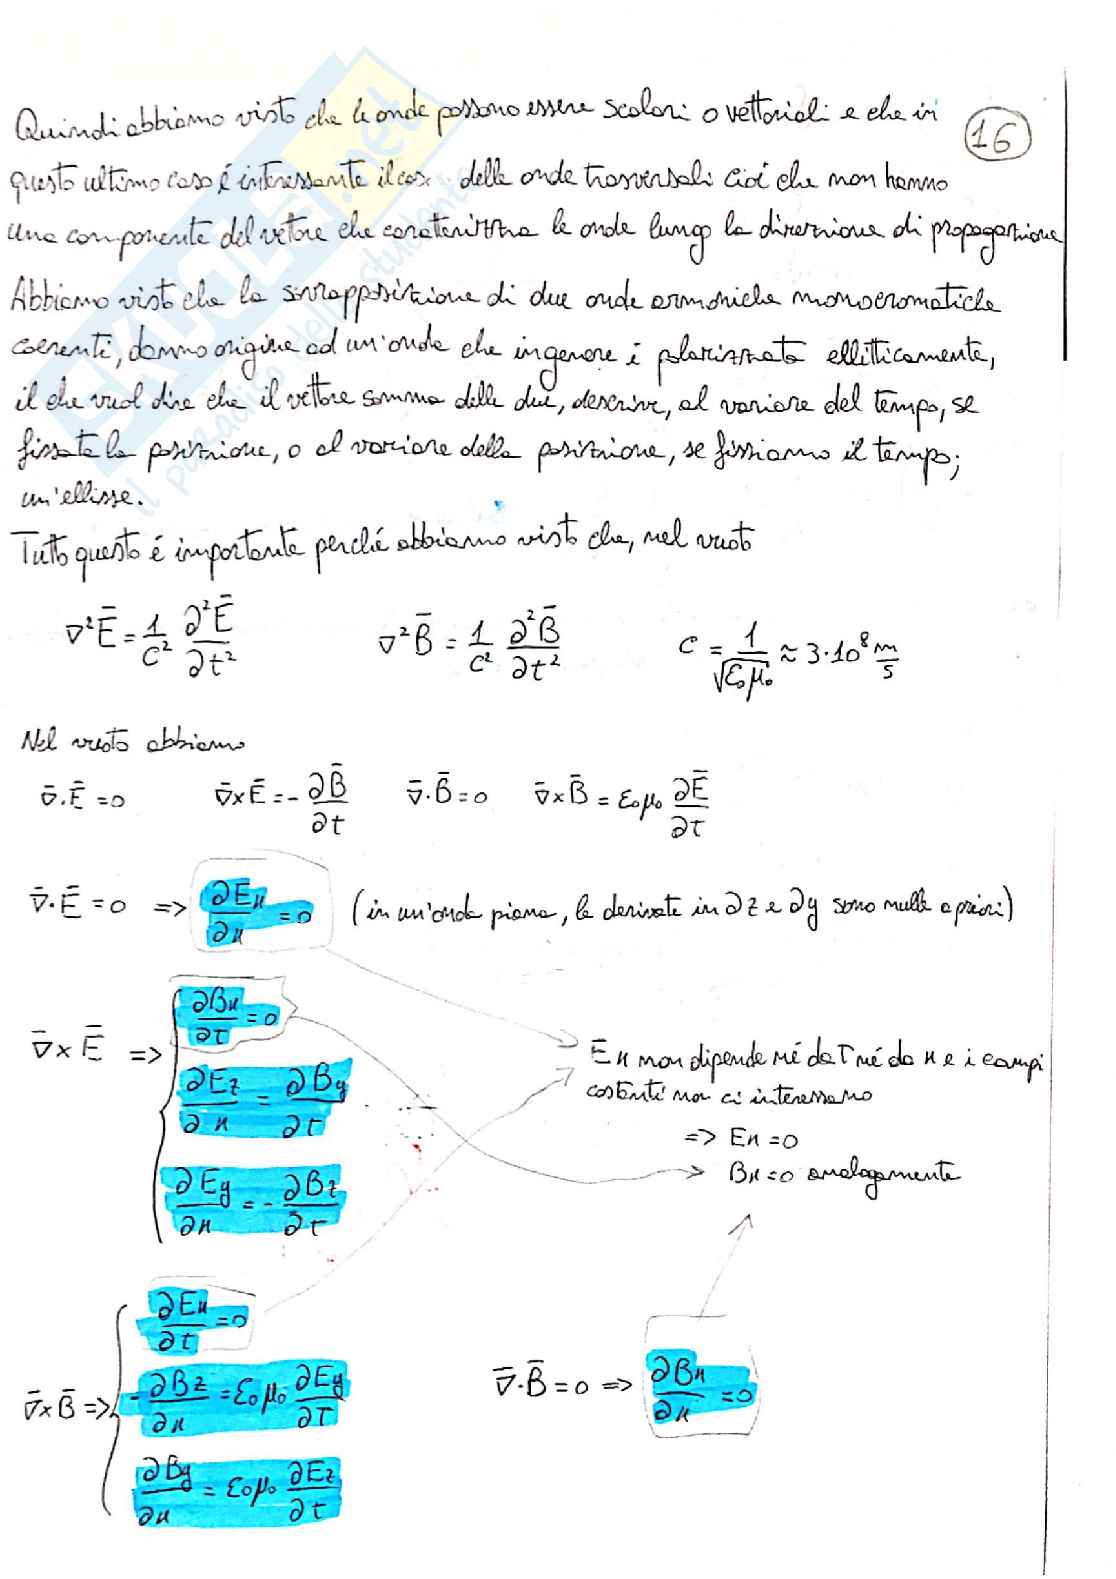 Quindi abbiamo visto che le onde possono essere scalari o vettoriali e che in
16
questo ultimo caso é interessante il caso delle onde trasversali cioé che non hanno
una componente del vettore che caratterizza le onde lungo la direzione di propagazione
Abbiamo visto che la sovrapposizione di due onde armoniche monocromatiche
coerenti, danno origine ad un'onda che in genere é polarizzata ellitticamente,
il che vuol dire che il vettore somma delle due, descrive, al variare del tempo, se
fissata la posizione, o al variare della posizione, se fissiamo il tempo;
un'ellisse.
Tutto questo é importante perché abbiamo visto che, nel vuoto
∇²Ē = 1/c² ∂²Ē/∂t²   ∇²B̄ = 1/c² ∂²B̄/∂t²   c = 1/√(ε₀μ₀) ≈ 3·10⁸ m/s
Nel vuoto abbiamo
∇̄·Ē = 0   ∇̄×Ē = - ∂B̄/∂t   ∇̄·B̄ = 0   ∇̄×B̄ = ε₀μ₀ ∂Ē/∂t
∇̄·Ē = 0 => ∂Ex/∂x = 0 (in un'onda piana, le derivate in ∂z e ∂y sono nulle a priori)
∇̄×Ē =>
∂Bx/∂t = 0
∂Ez/∂x = ∂By/∂t
∂Ey/∂x = - ∂Bz/∂t
Ex non dipende né da T né da x e i campi
costanti non ci interessano
=> Ex = 0
Bx = 0 analogamente
∇̄×B̄ =>
∂Ex/∂t = 0
- ∂Bz/∂x = ε₀μ₀ ∂Ey/∂t
∂By/∂x = ε₀μ₀ ∂Ez/∂t
∇̄·B̄ = 0 => ∂Bx/∂x = 0
SKUOLA.net
il paradiso dello studente